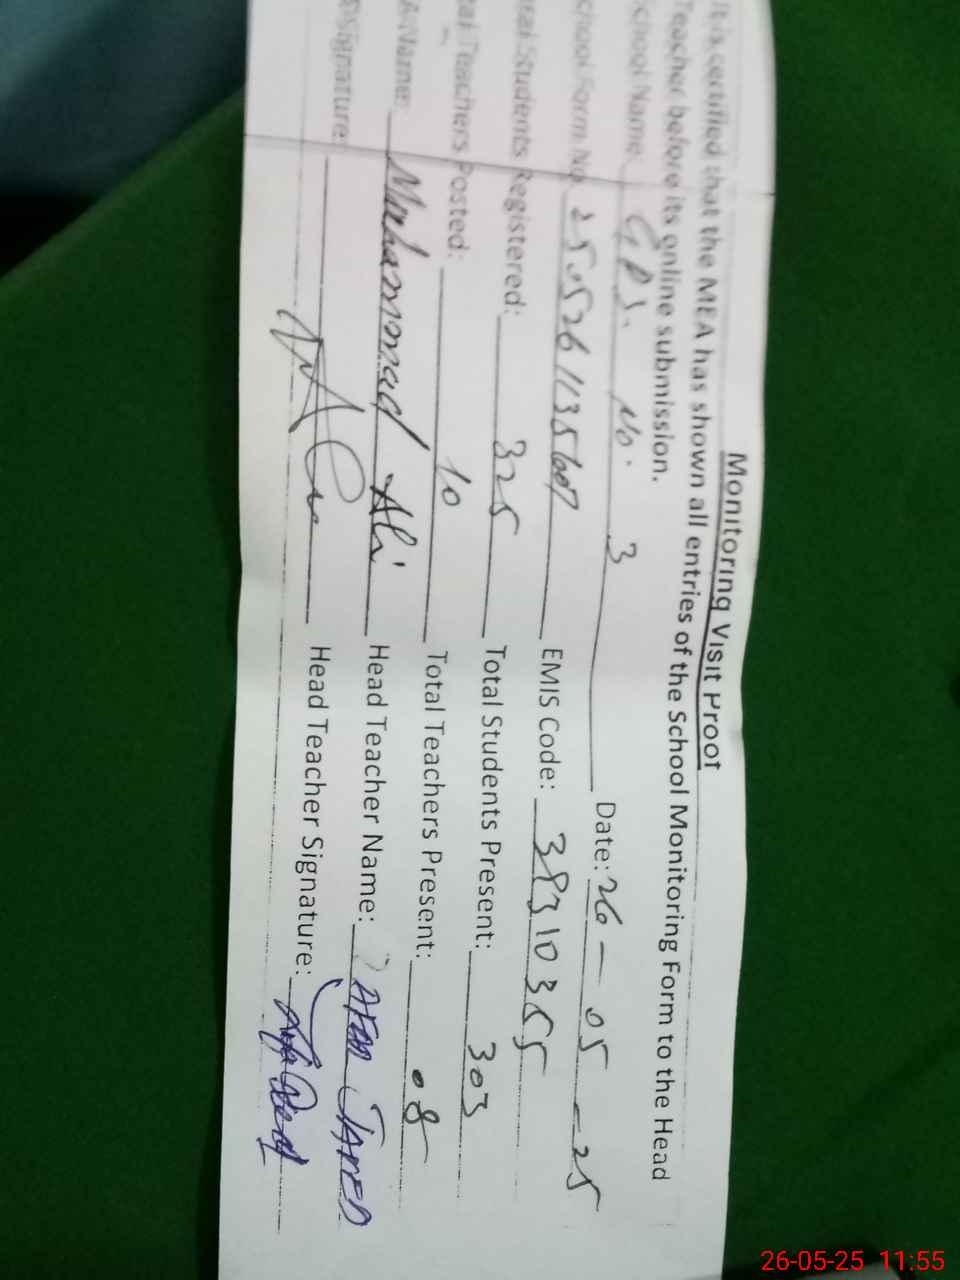 Monitoring Visit Proof
It is certified that the MEA has shown all entries of the School Monitoring Form to the Head
Teacher before its online submission.
School Name: GPS. No. 3 Date: 26-05-25
School Form No. EMIS Code: 38310355
Total Students Registered: 325 Total Students Present: 303
Total Teachers Posted: 10 Total Teachers Present: 08
Name: Muhammad Ali Head Teacher Name: JAVED
Signature: Head Teacher Signature:
26-05-25 11:55